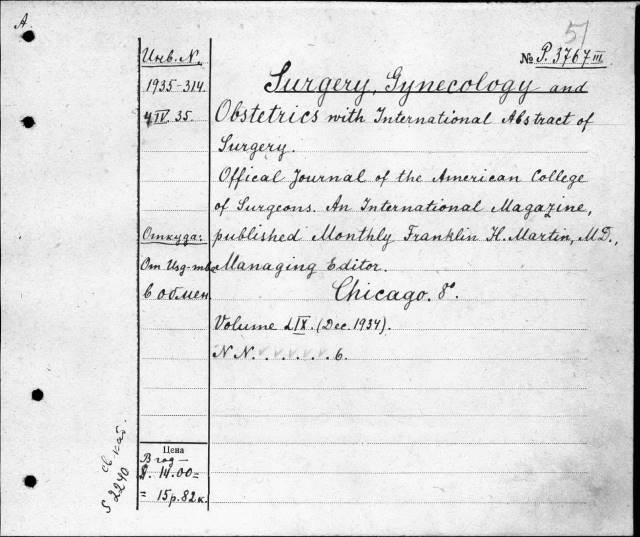 A.
51
Инв. N.
1935-314.
4/IV 35.
Откуда:
От Изд-тва
в обмен.
Цена
В год —
$. 14.00 =
= 15 р. 82 к.
св. кат.
S 2240
№ P. 3767 III
Surgery, Gynecology and
Obstetrics with International Abstract of
Surgery.
Offical Journal of the American College
of Surgeons. An International Magazine,
published Monthly Franklin H. Martin, M.D.,
Managing Editor.
Chicago. 8°.
Volume LIX. (Dec. 1934).
N N. . . . . . . 6.